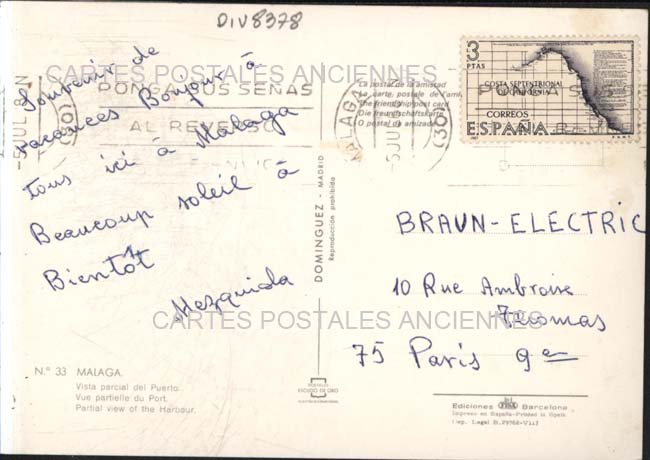 DIV8378
Souvenir de
vacances Bonjour à
tous ici à Malaga
Beaucoup soleil à
Bientôt
Mezquida
CARTES POSTALES ANCIENNES
PONGA SUS SEÑAS
AL REVERSO
MALAGA
5 JUL
(30)
La postal de la amistad
La carte postale de l'ami
The friendship post card
Die freundschaftskarte
O postal da amizade
3
PTAS
COSTA SEPTENTRIONAL
DE CALIFORNIA
CORREOS
ESPAÑA
DOMINGUEZ - MADRID
Reproducción prohibida
BRAUN-ELECTRIC
10 Rue Ambroise
Thomas
75 Paris 9e
CARTES POSTALES ANCIENNES
N.º 33 MALAGA.
Vista parcial del Puerto.
Vue partielle du Port.
Partial view of the Harbour.
POSTALES
ESCUDO DE ORO
Ediciones FISA Barcelona
Impreso en España-Printed in Spain
Dep. Legal B. 29762-VIII